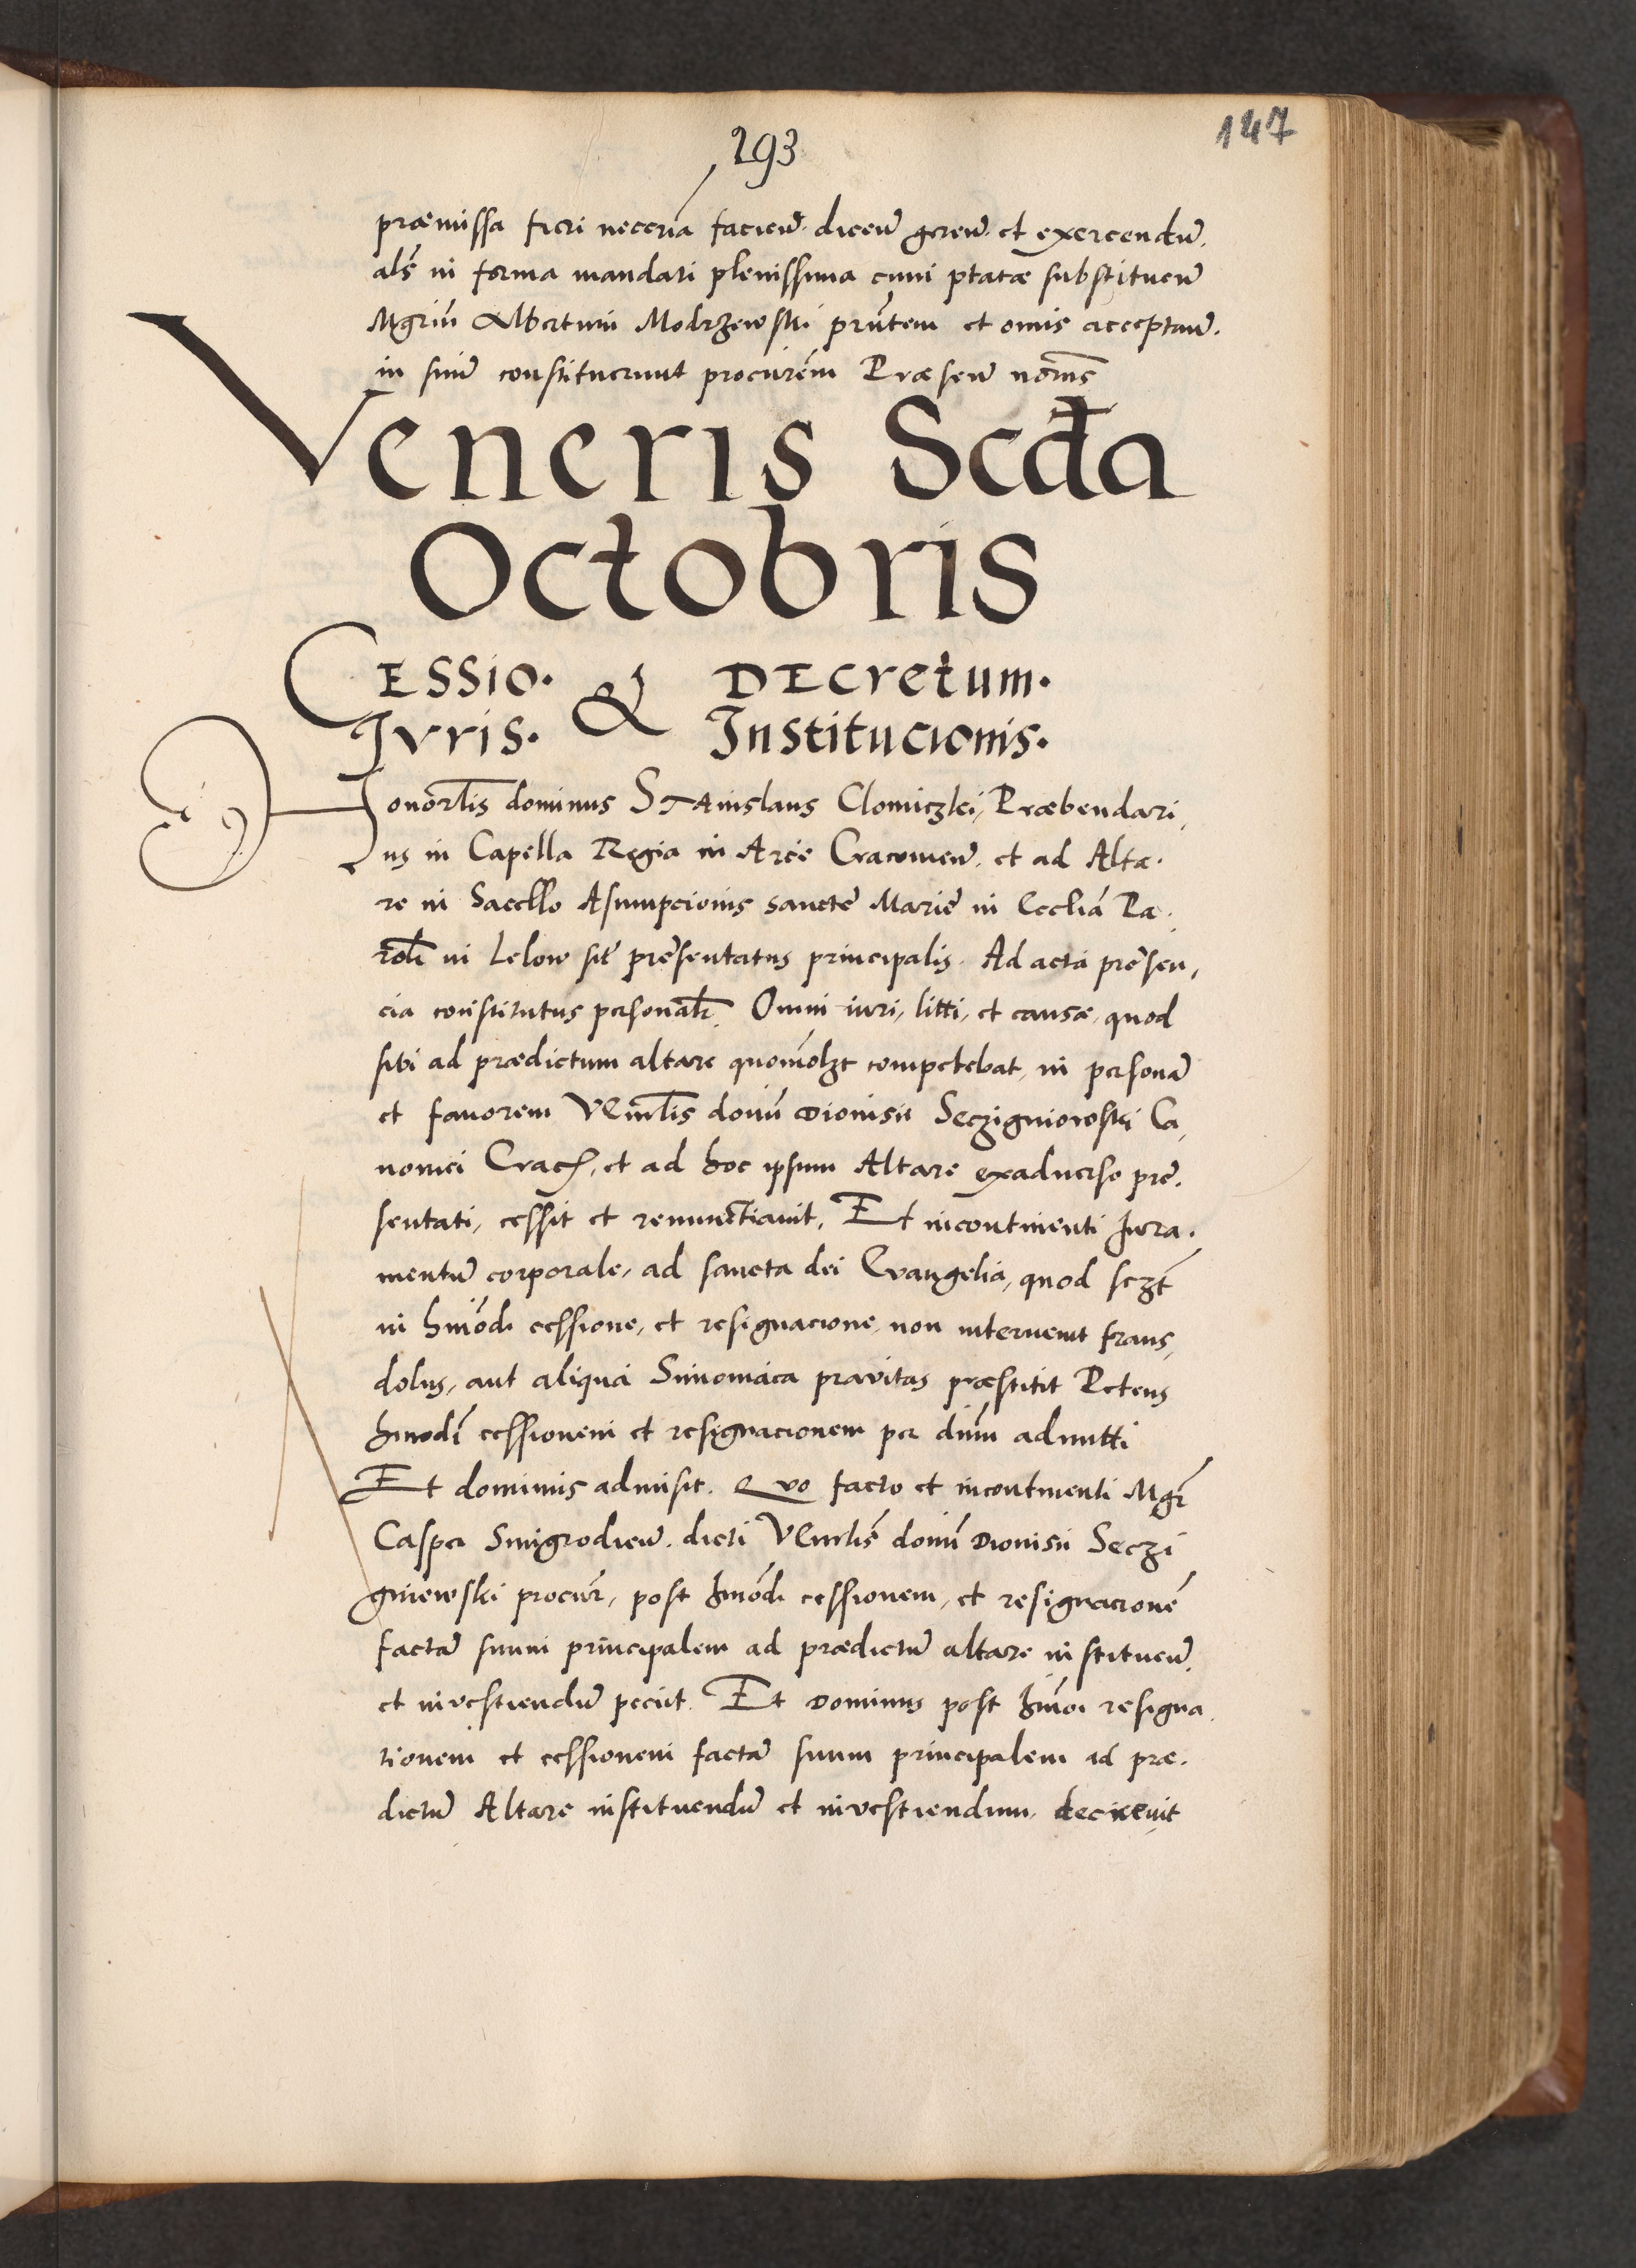 147
293
præmissa fieri necc̃ria faciẽn. diceñ gereñ. et exercendũ.
al̃s in forma mandati plenissima cum ptãtæ substitueñ
Mgrũm Albertum Modrzewski prñtem et omis acceptañ.
in simũ constituerunt procurẽm Præseñ nom̃s
Veneris Scd̃a
Octobris
CESSIO. & DECretum.
Juris. Institucionis.
Honorl̃is dominus STAnislaus Clomiczki, Præbendari,
us in Capella Regia in Arce Cracouieñ. et ad Alta.
re in Sacello Asumpcionis sancte Marie in Ecclia Pa.
rol̃i in Lelow sit̃ presentatus principalis. Ad acta presen,
cia constitutus personalr̃. Omni iuri, litti, et causæ, quod
sibi ad prædictum altare quomõlzt competebat, in personã
et fauorem Vel̃nlis domĩ Dionisii Secziginiowski Ca,
nonici Crac̃, et ad hoc ipsum Altare exaduerso pre.
sentati, cessit et renunctiauit, Et incontinenti Jura.
mentũ corporale, ad sancta dei Evangelia, quod sczt̃
in hmõdi cessione, et resignacione, non interuenit fraus,
dolus, aut aliqua Simoniaca pravitas præstitit Petens
hmodĩ cessionem et resignacionem per dñm admitti
Et dominus admisit. Quo facto et incontinenti Mgr̃
Casper Smigrodieñ. dicti Venrlis̃ domĩ Dionisii Seczi
gniewski procur̃, post hmõdi cessionem, et resignacionẽ
factã suum principalem ad prædictũ altare instituen̄,
et inuestiendũ peciit. Et Dominus post hmõi resigna,
tionem et cessionem factã suum principalem ad præ.
dictũ Altare instituendũ et inuestiendum, decreuit